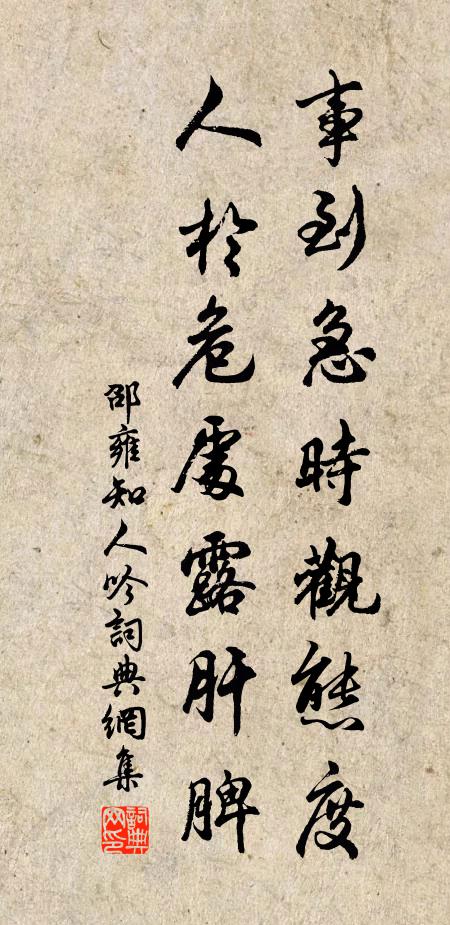 事到急時觀態度
人於危處露肝脾
邵雍知人吟詞典網集
詞典
网印